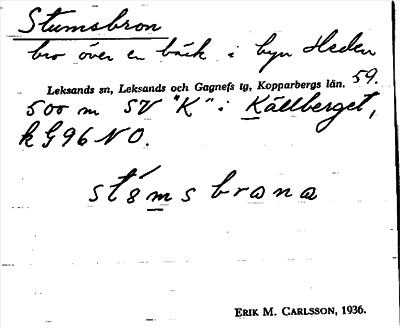 Stumsbron
bro över en bäck i byn Heden
Leksands sn, Leksands och Gagnefs tg, Kopparbergs län. 59.
500 m SV "K" i Källberget,
k G96 NO.
stómsbrɷnɷ
ERIK M. CARLSSON, 1936.